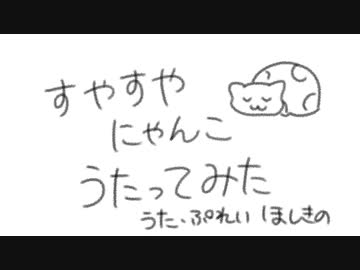 すやすや
にゃんこ
うたってみた
うた・ぷれい ほしきの